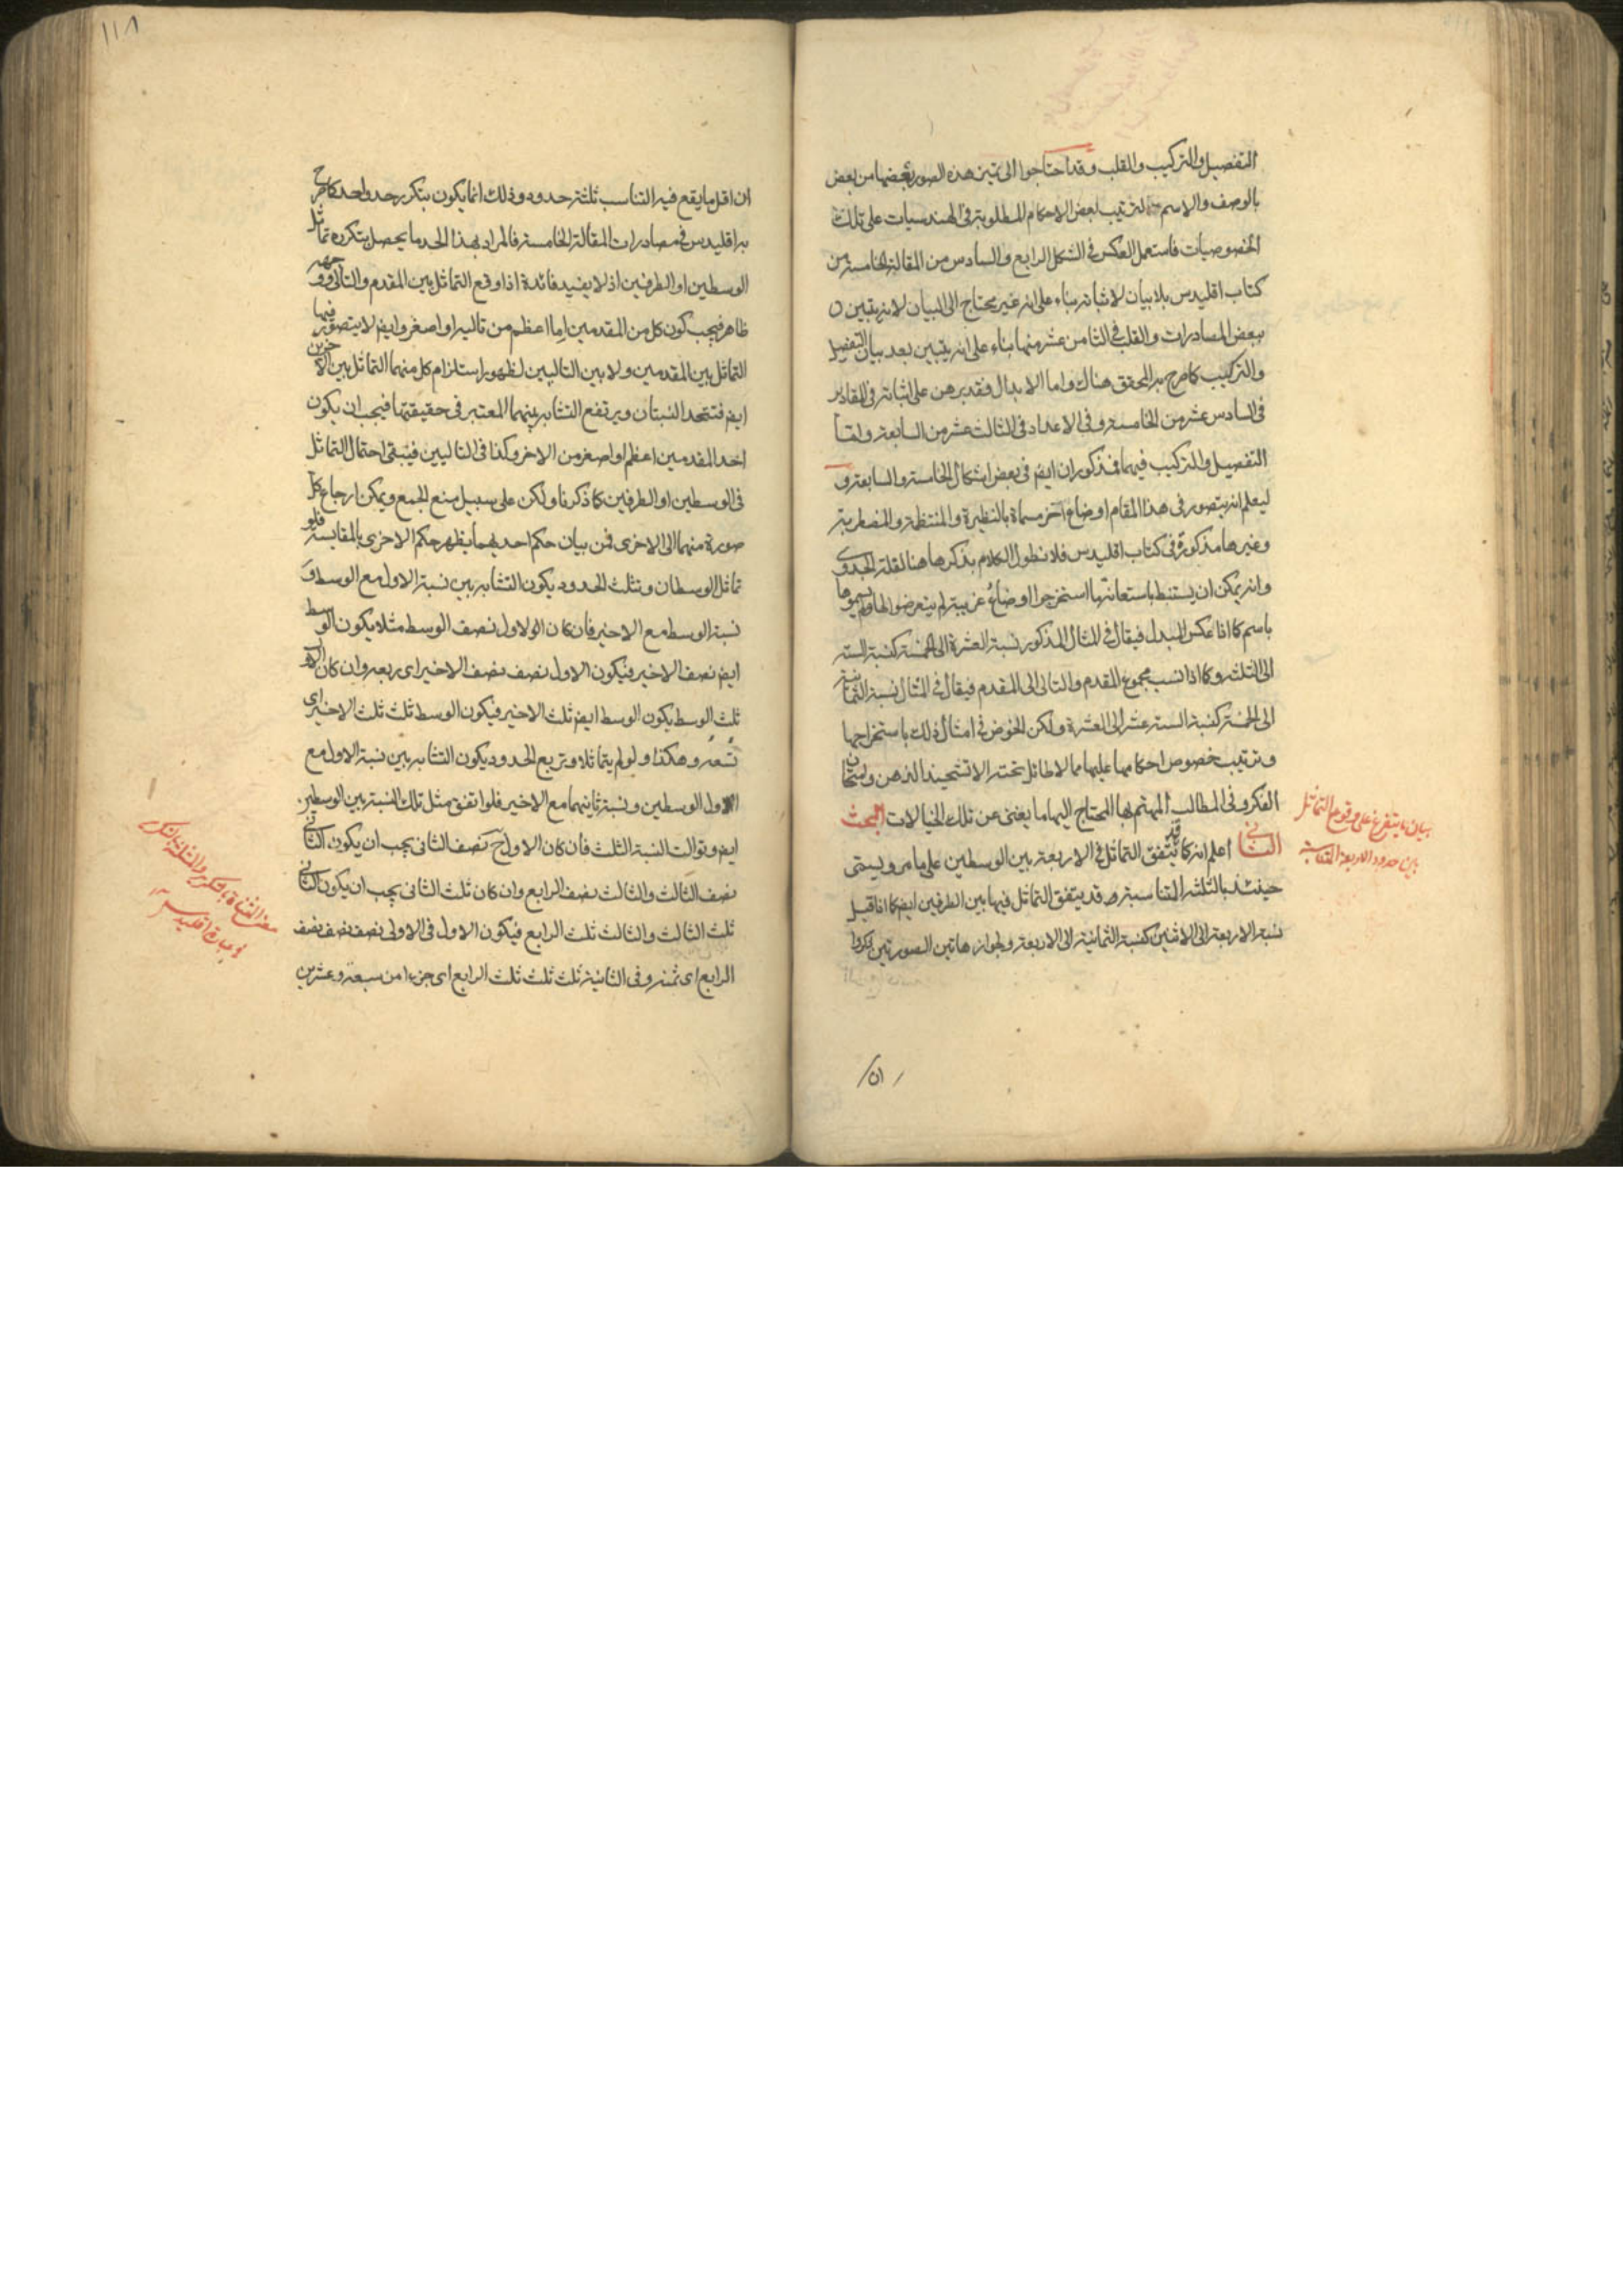 التفصيل والتركيب والقلب وقد احتاجوا الى تميز هذه الصور بعضها من بعض
بالوصف والاسم لترتيب بعض الاحكام المطلوبة فى الهندسيات على تلك
الخصوصيات فاستعمل العكس فى الشكل الرابع والسادس من المقالة الخامسة من
كتاب اقليدس بلا بيان لاثباته بناء على انه غير محتاج الى البيان لانه يتبين
ببعض المصادرات والقلب فى الثامن عشر منها بناء على انه يتبين بعد بيان التفصيل
والتركيب كما صرح به المحقق هناك واما الابدال فقد برهن على اثباته فى المقادير
فى السادس عشر من الخامسة وفى الاعداد فى الثالث عشر من السابعة واما
التفصيل والتركيب فيهما فمذكوران ايض فى بعض اشكال الخامسة والسابعة و
ليعلم انه يتصور فى هذا المقام اوضاع آخر مسماة بالنظيرة والمنتظمة والمضطربة
وغيرها مذكورة فى كتاب اقليدس فلا نطول الكلام بذكرها هنا لقلة الجدوى
وانه يمكن ان يستنبط باستعانتها استخراجا اوضاع غريبة لم يتعرضوا لها ولم يسموها
باسم كما اذا عكس المبدل فيقال فى المثال المذكور نسبة العشرة الى الخمسة كنسبة الستة
الى الثلثة وكما اذا نسب مجموع المقدم والتالى الى المقدم فيقال فى المثال نسبة الثمانية
الى الخمسة كنسبة الستة عشر الى العشرة ولكن الخوض فى امثال ذلك باستخراجها
وترتيب خصوص احكامها عليها مما لا طائل تحته الا تشحيذ الذهن وامتحان
الفكر وفى المطالب المهتم بها المحتاج اليها ما يغنى عن تلك الخيالات البحث
الثانى اعلم انه كما قد يتفق التماثل فى الاربعة بين الوسطين على ما مر ويسمى
حينئذ بالثلثة المتناسبة قد يتفق التماثل فيها بين الطرفين ايض كما اذا قيل
نسبة الاربعة الى الاثنين كنسبة الثمانية الى الاربعة ولجواز هاتين الصورتين ذكروا
ان
بيان ما يتفرع على وقوع التماثل
بين حدود الاربعة المتناسبة
١١٨
ان اقل ما يقع فيه التناسب ثلثة حدود وذلك انما يكون بتكرر حد واحد كما صرح
به اقليدس فى مصادرات المقالة الخامسة فالمراد بهذا الحد ما يحصل بتكرره تماثل
الوسطين او الطرفين اذ لا يفيد فائدة اذا وقع التماثل بين المقدم والتالى ووجهه
ظاهر فيجب كون كل من المقدمين اما اعظم من تاليه او اصغر وايض لا يتصور فيها
التماثل بين المقدمين ولا بين التاليين لظهور استلزام كل منهما التماثل بين الاخرين
ايض فتتحد النسبتان ويرتفع التشابه بينهما المعتبر فى حقيقتها فيجب ان يكون
احد المقدمين اعظم او اصغر من الاخر وكذا فى التاليين فيبقى احتمال التماثل
فى الوسطين او الطرفين كما ذكرنا ولكن على سبيل منع الجمع ويمكن ارجاع كل
صورة منهما الى الاخرى فمن بيان حكم احديهما يظهر حكم الاخرى بالمقايسة فلو
تماثل الوسطان وتثلث الحدود يكون التشابه بين نسبة الاول مع الوسط و
نسبة الوسط مع الاخير فان كان الاول نصف الوسط مثلا يكون الوسط
ايض نصف الاخير فيكون الاول نصف نصف الاخير اى ربعه وان كان الاول
ثلث الوسط يكون الوسط ايض ثلث الاخير فيكون الوسط ثلث ثلث الاخير اى
تسعه وهكذا ولو لم يتماثلا وتربع الحدود يكون التشابه بين نسبة الاول مع
اول الوسطين ونسبة ثانيهما مع الاخير فلو اتفق مثل تلك النسبة بين الوسطين
ايض وتوالت النسبة الثلث فان كان الاول ح نصف الثانى يجب ان يكون الثانى
نصف الثالث والثالث نصف الرابع وان كان ثلث الثانى يجب ان يكون الثانى
ثلث الثالث والثالث ثلث الرابع فيكون الاول فى الاولى نصف نصف نصف
الرابع اى ثمنه وفى الثانية ثلث ثلث ثلث الرابع اى جزءا من سبعة وعشرين